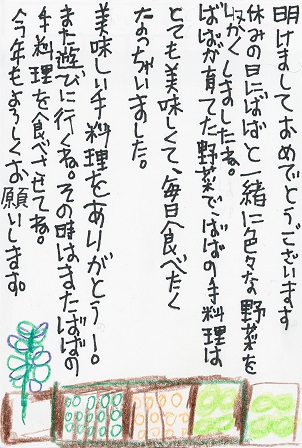 明けましておめでとうございます
休みの日にばばと一緒に色々な野菜を
収かくしましたね。
ばばが育てた野菜でばばの手料理は
とても美味しくて、毎日食べたく
なっちゃいました。
美味しい手料理をありがとうー。
また遊びに行くね。その時はまたばばの
手料理を食べさせてね。
今年もよろしくお願いします。